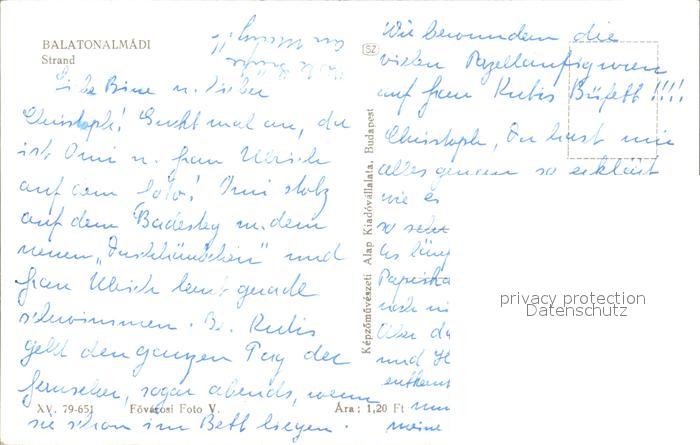 BALATONALMÁDI
Strand
Liebe Bine u. lieber
Christoph! Guckt mal an, da
ist Omi u. Frau Ulrich
auf dem Foto! Omi stolz
auf dem Badesteg m. dem
neuen und
Frau Ulrich lernt gerade
schwimmen. B. Kutis
geht den ganzen Tag der
Fernseher, sogar abends, wenn
sie schon im Bett liegen.
XV. 79-651 Fővárosi Foto V. Ára: 1,20 Ft
Képzőművészeti Alap Kiadóvállalata, Budapest
SZ
Wir bewundern die
vielen Porzellanfiguren
auf Frau Kutis Büfett!!!!
Christoph, Du hast mir
alles genau so erklärt
wie es
so sehr
Paprika
noch
Aber du
und
meine
privacy protection
Datenschutz